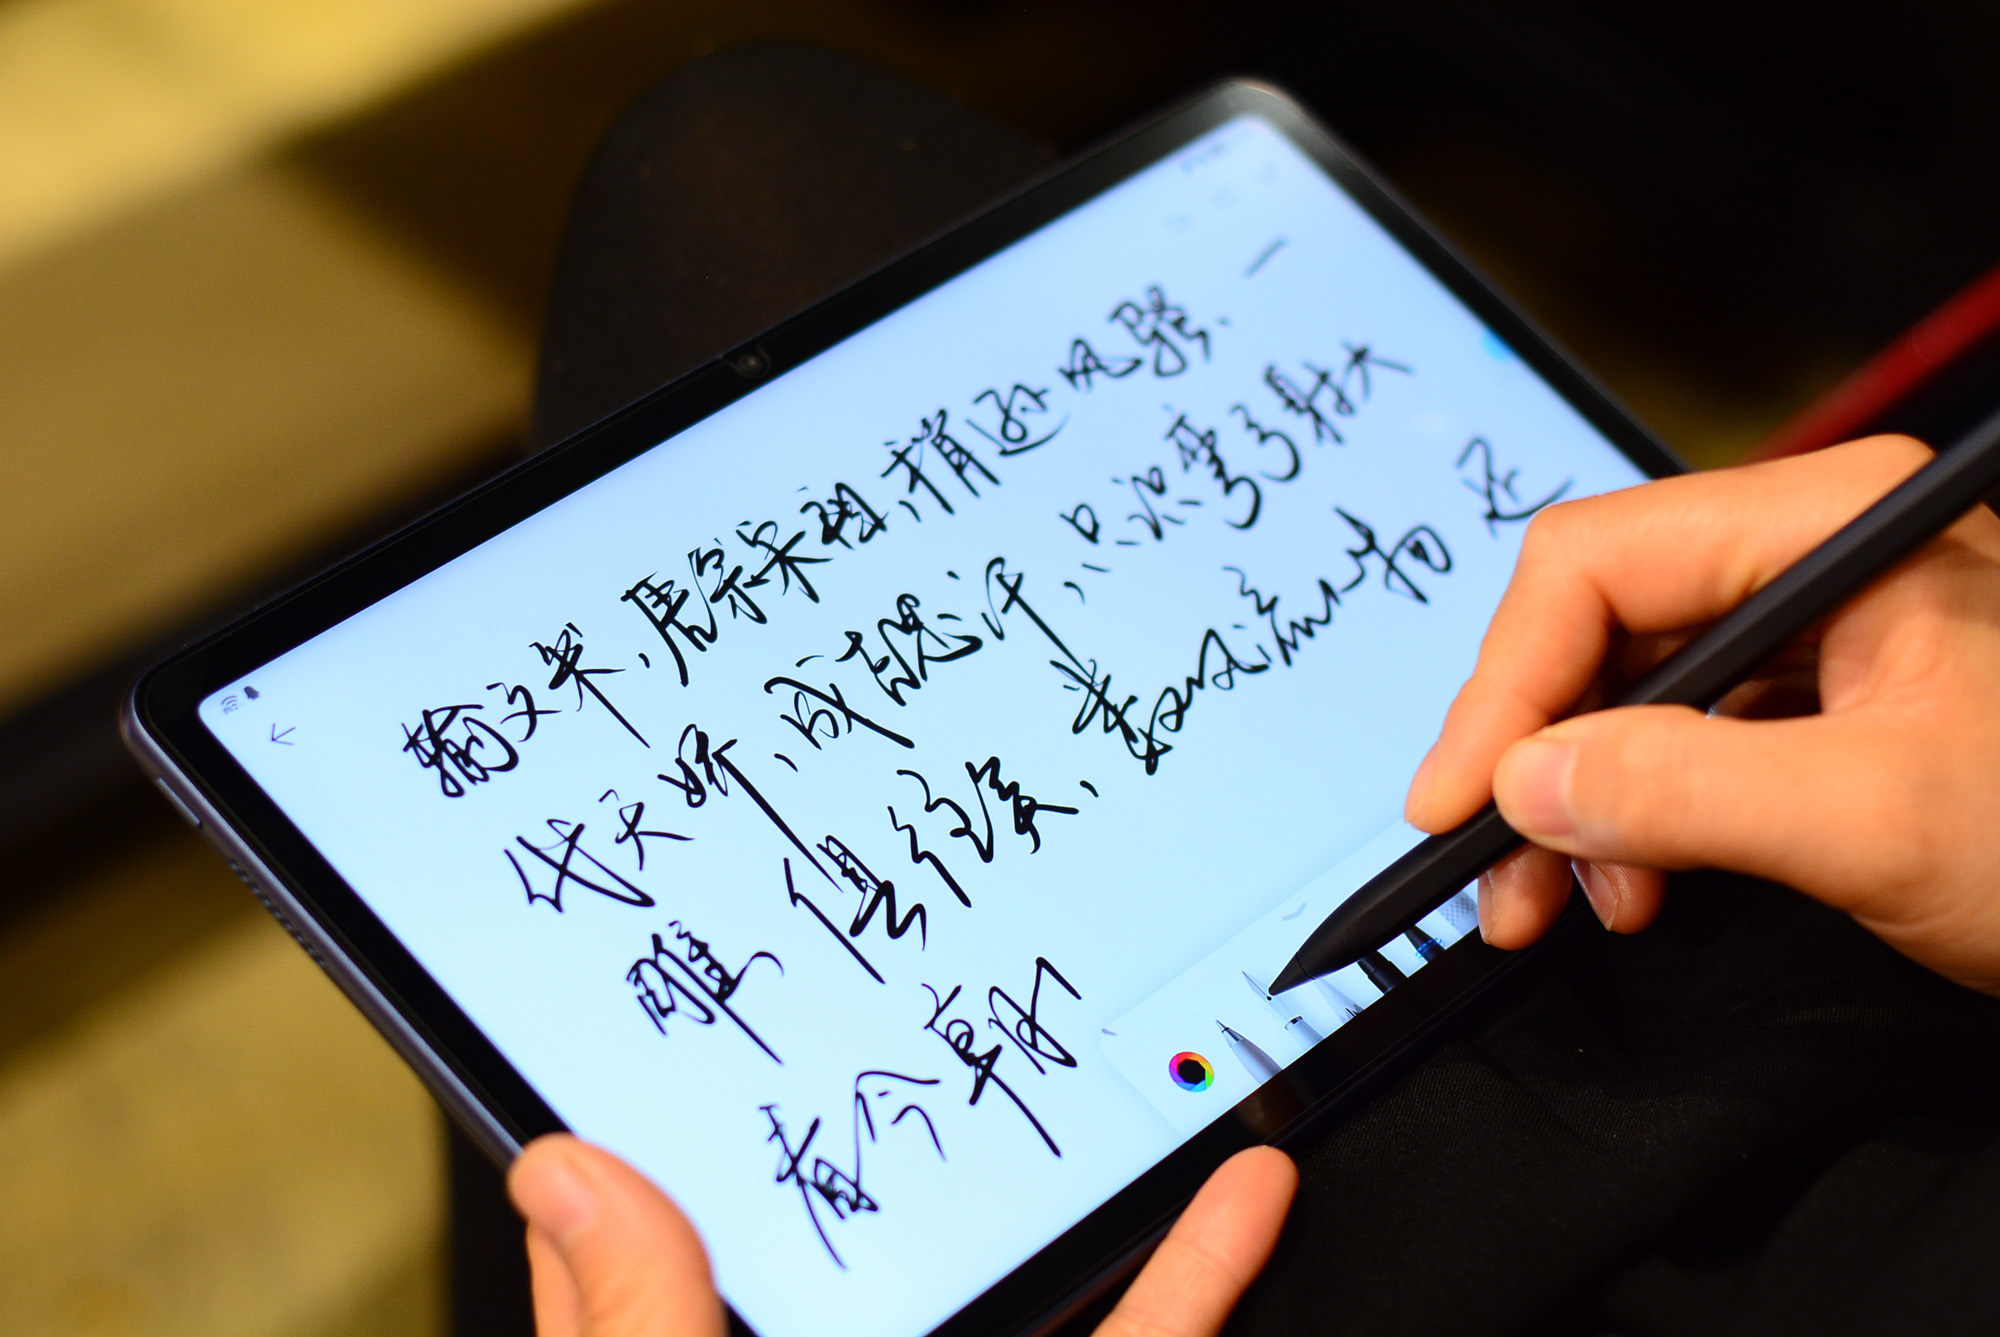 输文采,唐宗宋祖,稍逊风骚、一
代天娇,成吉思汗,只识弯弓射大
雕 俱往矣,数风流人物 还
看今朝